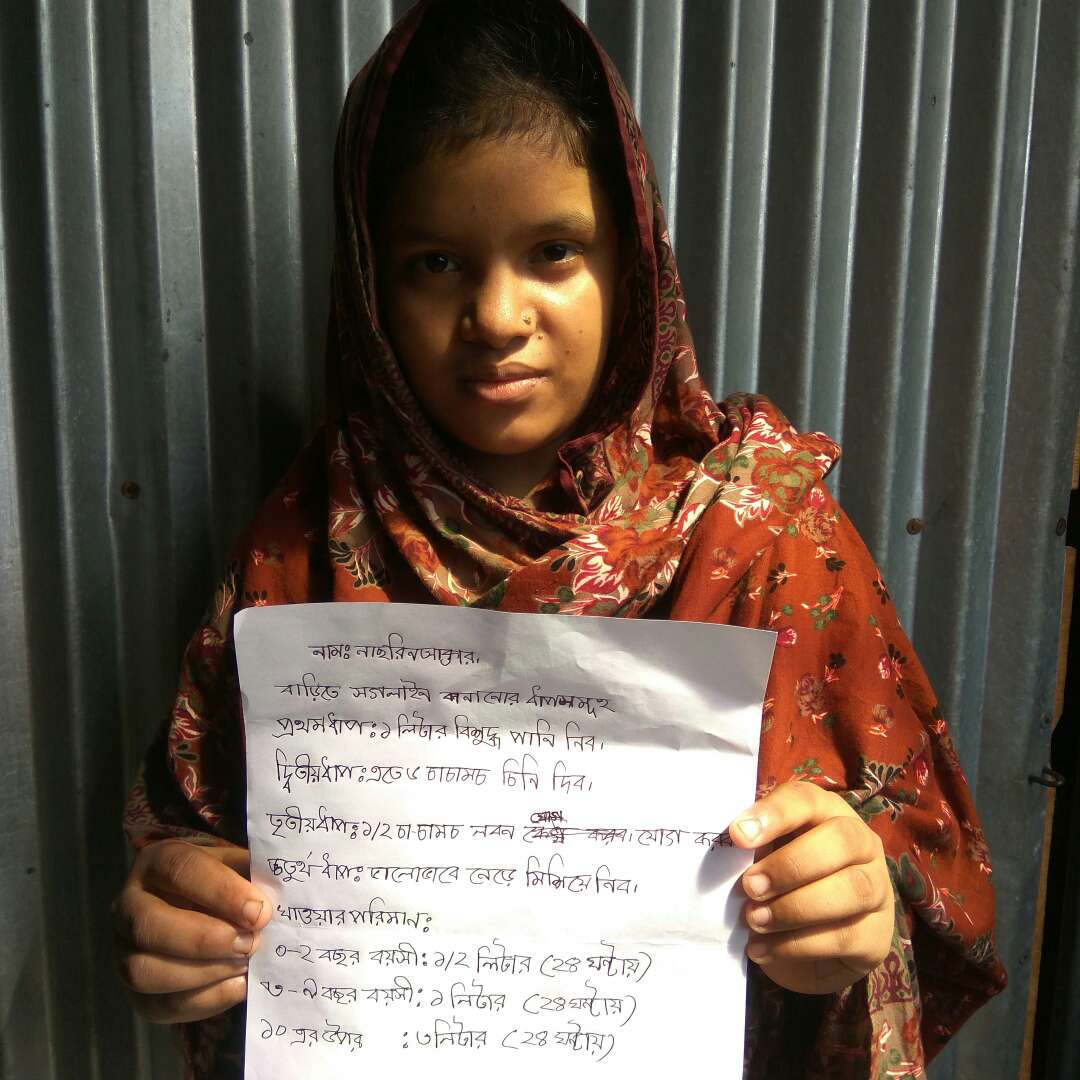 নামঃ নাছরিন আক্তার।
বাড়িতে স্যালাইন বানানোর ধাপসমূহ
প্রথম ধাপঃ ১ লিটার বিশুদ্ধ পানি নিব।
দ্বিতীয় ধাপঃ এতে ৬ চা চামচ চিনি দিব।
তৃতীয় ধাপঃ ১/২ চা-চামচ লবন যোগ করব। যোগ করব
চতুর্থ ধাপঃ ভালোভাবে নেড়ে মিশিয়ে নিব।
খাওয়ার পরিমানঃ
০-২ বছর বয়সীঃ ১/২ লিটার (২৪ ঘন্টায়)
৩-৯ বছর বয়সীঃ ১ লিটার (২৪ ঘন্টায়)
১০ এর উপর : ৩ লিটার (২৪ ঘন্টায়)